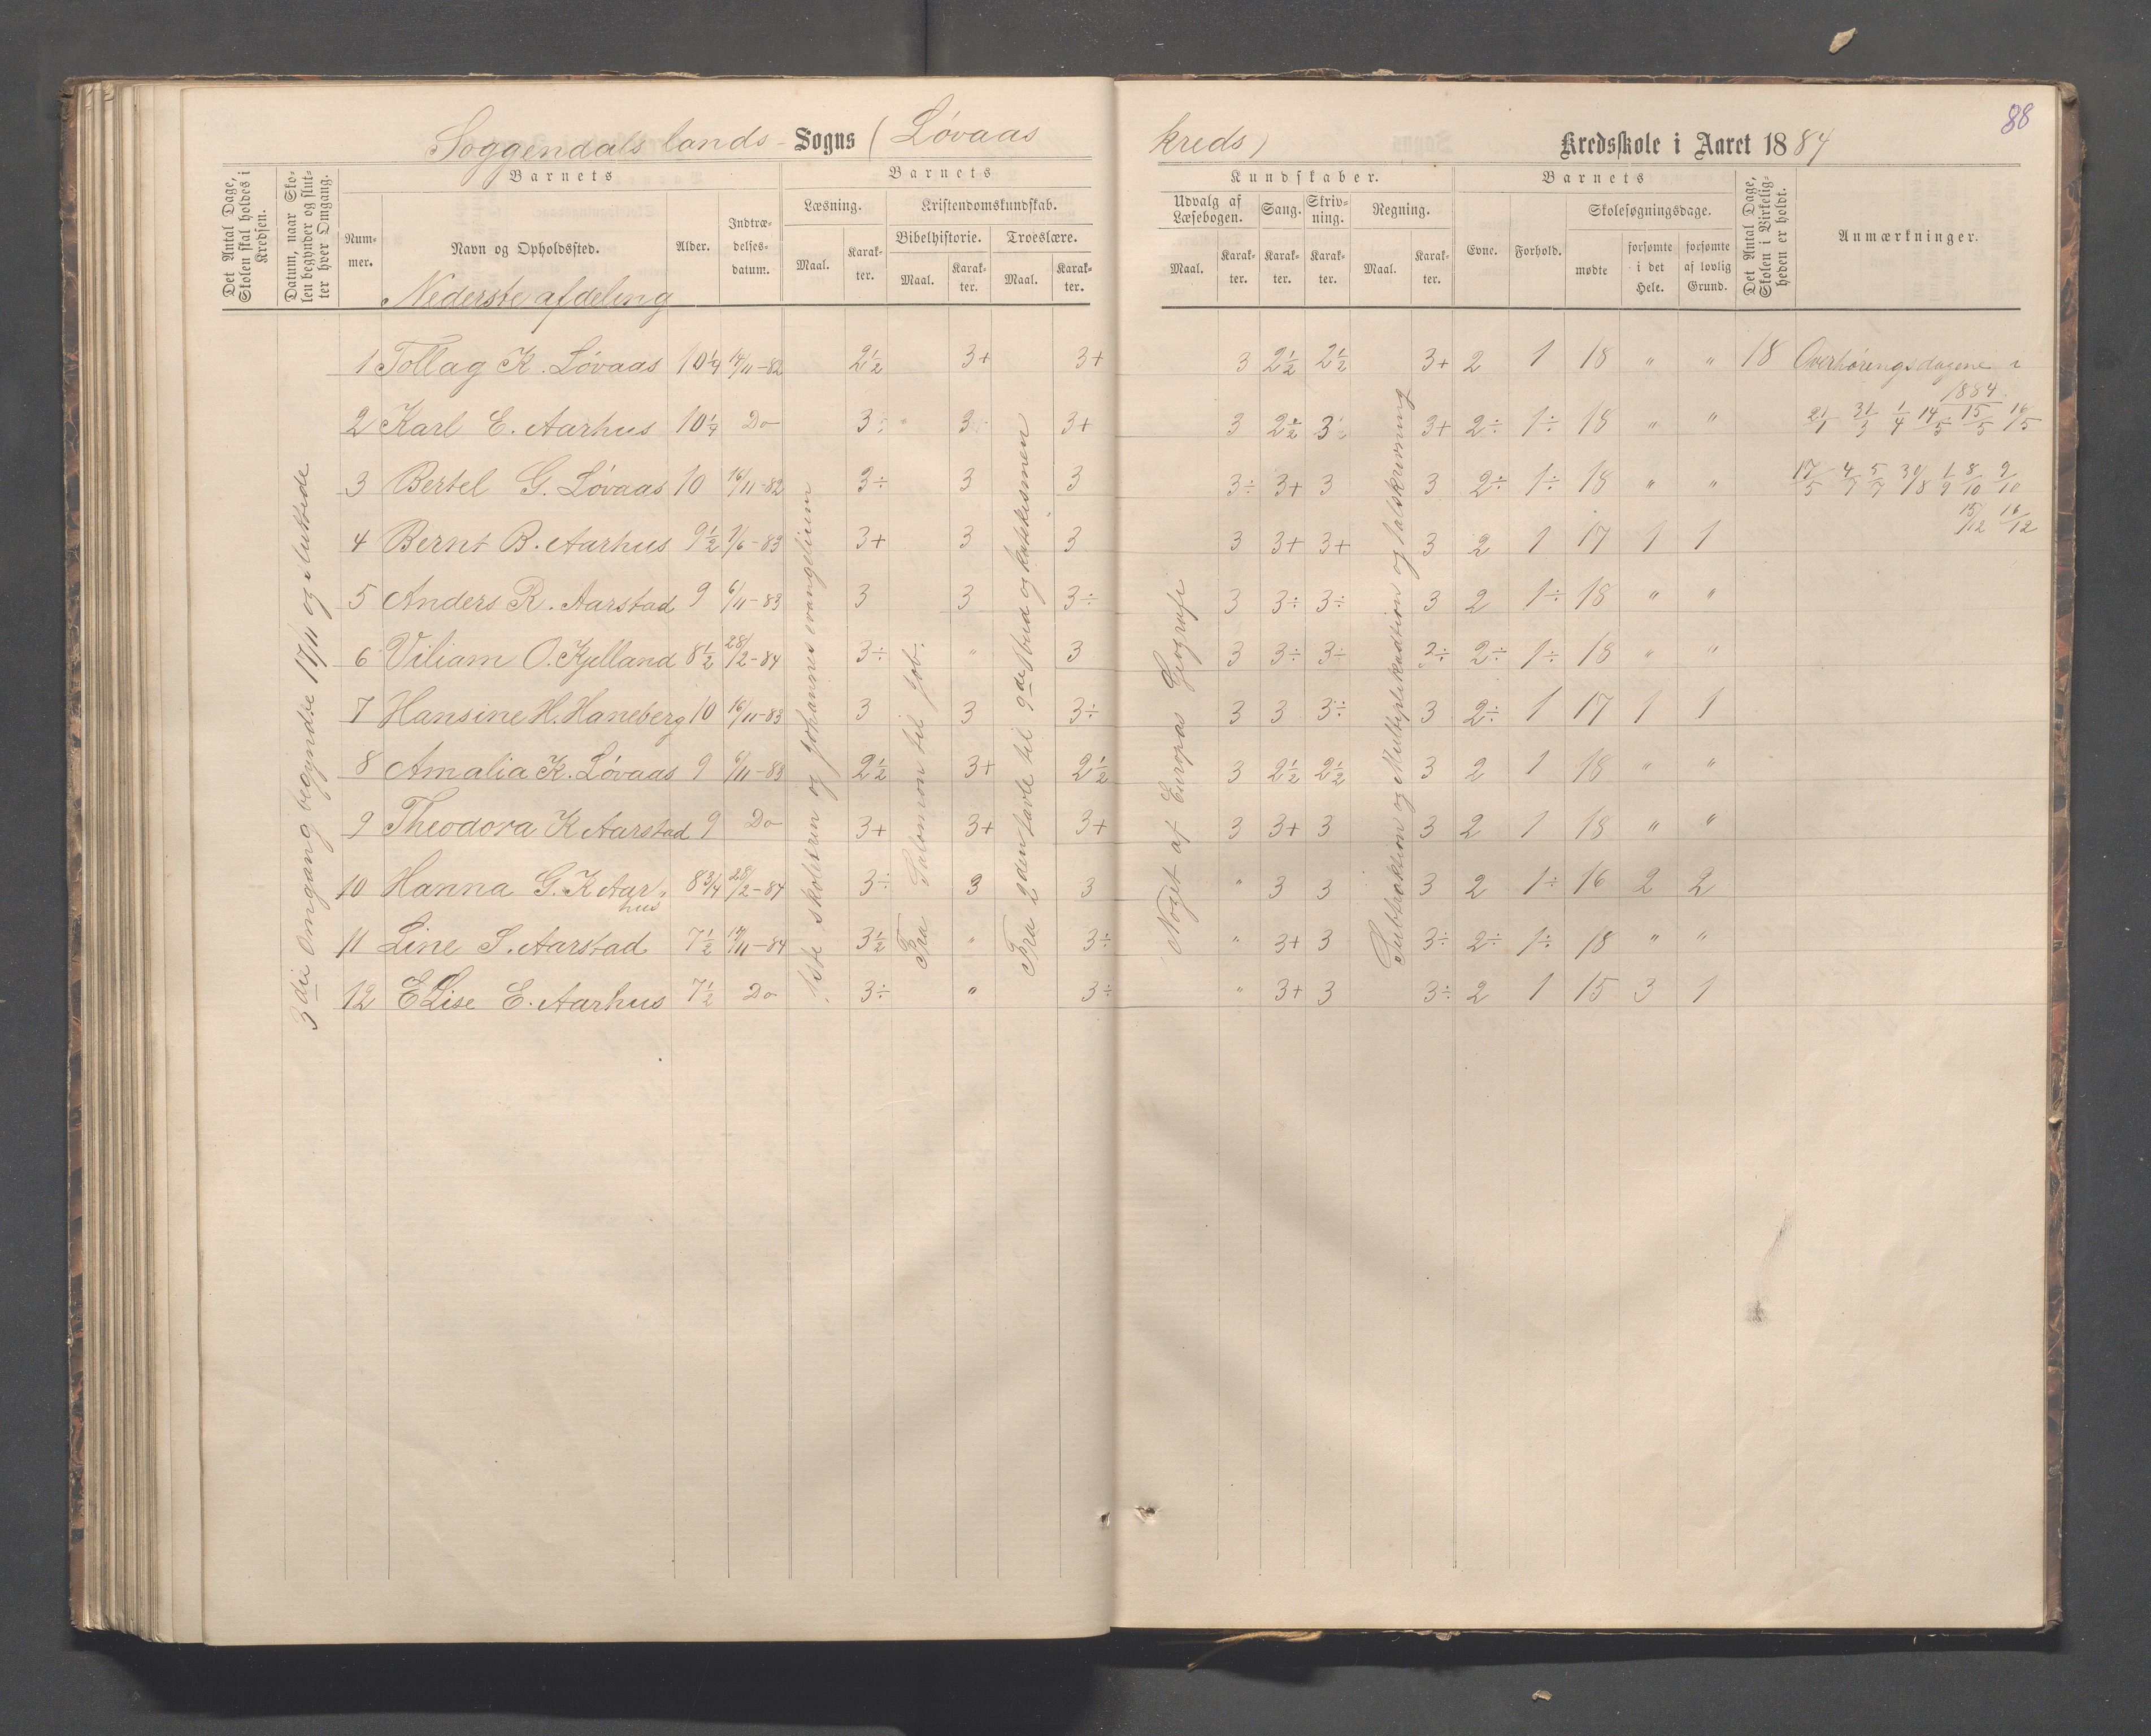 88
Soggendals lands- Sogns (Løvaas kreds) Kredsskole i Aaret 1884
Det Antal Dage, Skolen skal holdes i Kredsen.
Datum, naar Skolen begynder og slutter hver Omgang.
Barnets
Nummer.
Navn og Opholdssted.
Alder.
Indtrædelsesdatum.
Barnets
Læsning.
Maal.
Karakter.
Kristendomskundskab.
Bibelhistorie.
Maal.
Karakter.
Troeslære.
Maal.
Karakter.
Kundskaber.
Udvalg af Læsebogen.
Maal.
Karakter.
Sang.
Karakter.
Skrivning.
Karakter.
Regning.
Maal.
Karakter.
Barnets
Evne.
Forhold.
Skolesøgningsdage.
mødte
forsømte i det Hele.
forsømte af lovlig Grund.
Det Antal Dage, Skolen i Virkeligheden er holdt.
Anmærkninger.
Nederste afdeling
1 Tollag K. Løvaas 10 1/4 14/11-82 2 1/2 3+ 3+ 3 2 1/2 2 1/2 3+ 2 1 18 " " 18 Overhøringsdagene i
1884
2 Karl E. Aarhus 10 1/4 Do 3÷ 3 3+ 3 2 1/2 3 3+ 2÷ 1÷ 18 " " 21/1 31/3 1/4 14/5 15/5 16/5
3 Bertel G. Løvaas 10 16/11-82 3÷ 3 3 3÷ 3+ 3 3 2÷ 1÷ 18 " " 17/5 4/7 5/7 30/8 1/9 8/10 9/10
15/12 16/12
4 Bernt B. Aarhus 9 1/2 7/6-83 3+ 3 3 3 3+ 3+ 3 2 1 17 1 1
5 Anders R. Aarstad 9 6/11-83 3 3 3÷ 3 3÷ 3÷ 3 2 1÷ 18 " "
6 Viliam O. Kjelland 8 1/2 28/2-84 3÷ " 3 3 3÷ 3÷ 3÷ 2÷ 1÷ 18 " "
7 Hansine H. Haneberg 10 16/11-83 3 3 3÷ 3 3 3÷ 3 2÷ 1 17 1 1
8 Amalia K. Løvaas 9 6/11-83 2 1/2 3+ 2 1/2 3 2 1/2 2 1/2 3 2 1 18 " "
9 Theodora K Aarstad 9 Do 3+ 3+ 3+ 3 3+ 3 3 2 1 18 " "
10 Hanna G. K Aarhus 8 3/4 28/2-84 3÷ 3 3 " 3 3 3 2 1÷ 16 2 2
11 Line S. Aarstad 7 1/2 17/11-84 3 1/2 " 3÷ " 3+ 3 3÷ 2÷ 1÷ 18 " "
12 ELise E. Aarhus 7 1/2 Do 3÷ " 3÷ " 3+ 3 3÷ 2 1 15 3 1
3die Omgang begyndte 17/11 og sluttede
1ste skoletrin og Johannes evangelium
Fra Salomon til Job.
Fra 2den tavle til 9de bud og katekismen
Noget af Europas Geografi
Subtraktion og Multiplikadtion og talskrivning